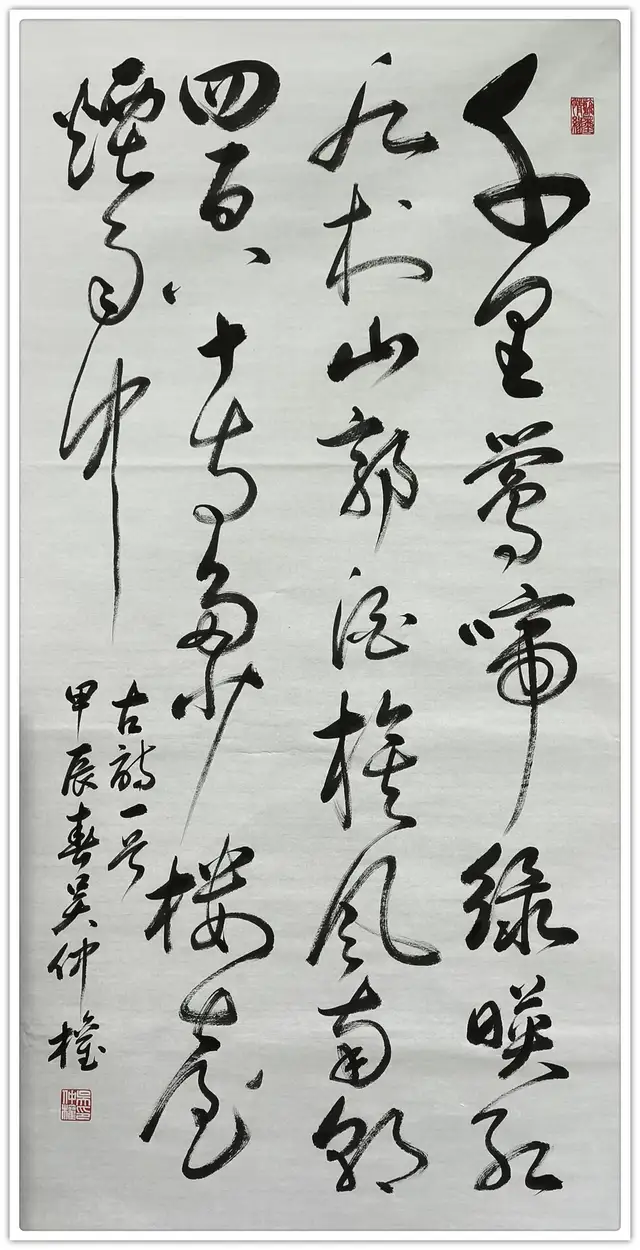 千里鶯啼綠暎紅
水村山郭酒旗風南朝
四百八十寺多少樓臺
煙雨中
古詩一首
甲辰春吳仲